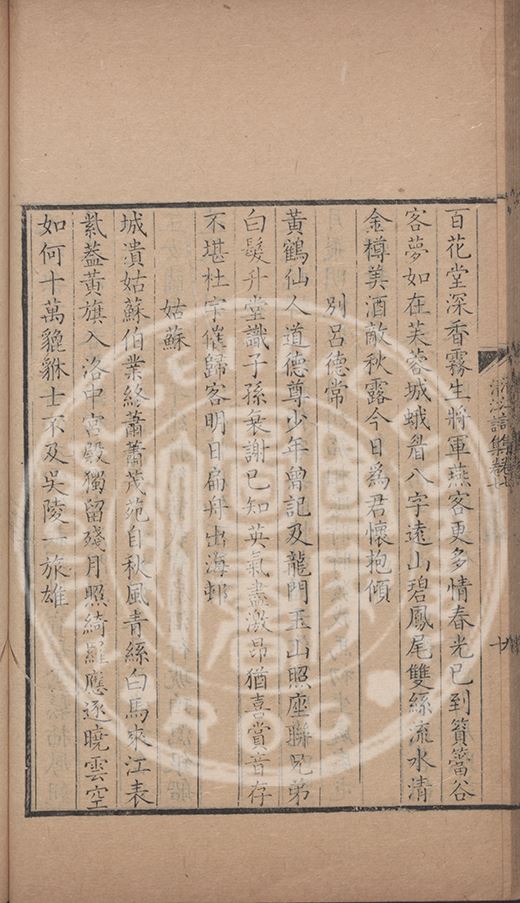 百花堂深香霧生將軍燕客更多情春光已到篔簹谷
客夢如在芙蓉城蛾眉八字遠山碧鳳尾雙絲流水清
金樽美酒敵秋露今日為君懷抱傾
別呂德常
黃鶴仙人道德尊少年曾記及龍門玉山照座聯兄弟
白髮升堂識子孫衰謝已知英氣盡激昂猶喜賞音存
不堪杜宇催歸客明日扁舟出海邨
姑蘇
城潰姑蘇伯業終蕭蕭茂苑自秋風青絲白馬來江表
紫葢黃旗入洛中宮殿獨留殘月照綺羅應逐曉雲空
如何十萬貔貅士不及吳陵一旅雄
詩集卷